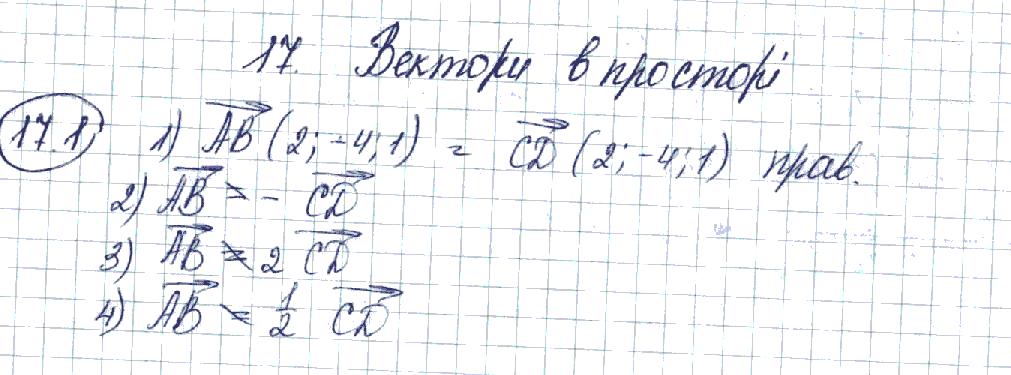 17. Вектори в просторі
17.1. 1) AB (2; -4; 1) = CD (2; -4; 1) прав.
2) AB = - CD
3) AB = 2 CD
4) AB = 1/2 CD